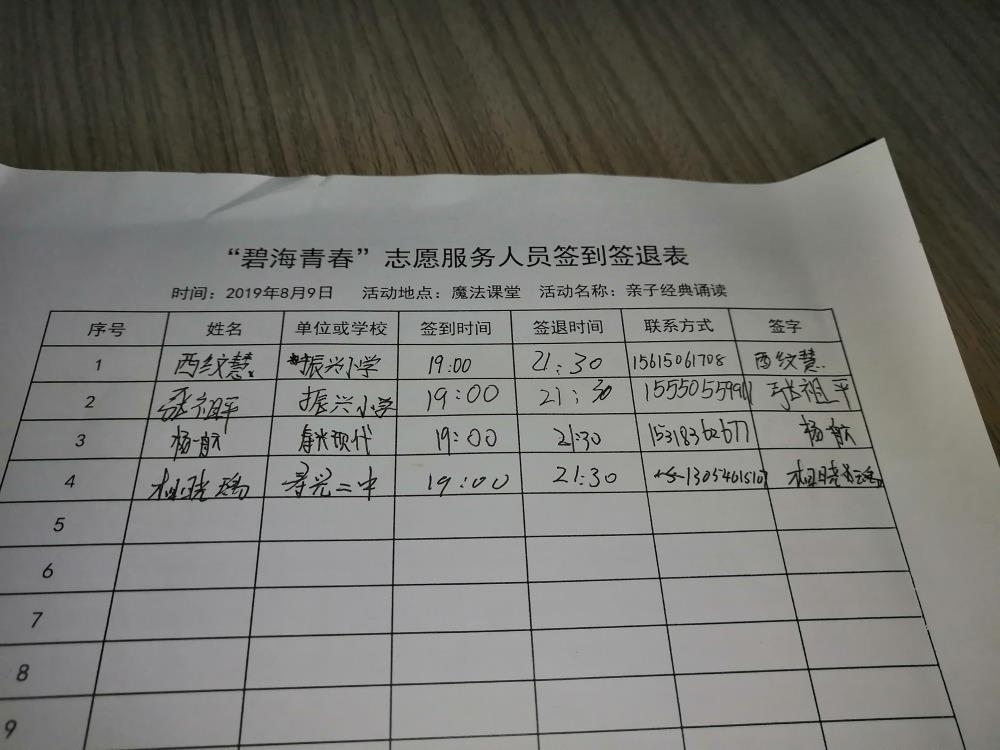 “碧海青春”志愿服务人员签到签退表
时间：2019年8月9日 活动地点：魔法课堂 活动名称：亲子经典诵读
序号 姓名 单位或学校 签到时间 签退时间 联系方式 签字
1 西纹慧 振兴小学 19:00 21:30 15615061708 西纹慧
2 张祖平 振兴小学 19:00 21:30 张祖平
3 杨航 现代 19:00 21:30 15318362677 杨航
4 二中 19:00 21:30
5
6
7
8
9